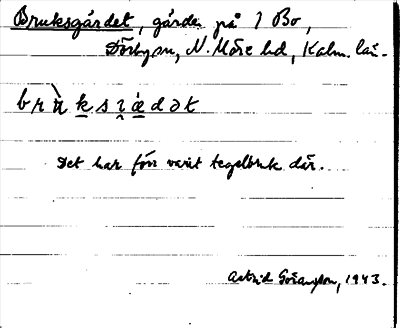 Bruksgärdet, gärde på 1 Bo,
Dörbyan, N. Möre hd, Kalm. län.
Det har förr varit tegelbruk där.
Astrid Göransson, 1943.